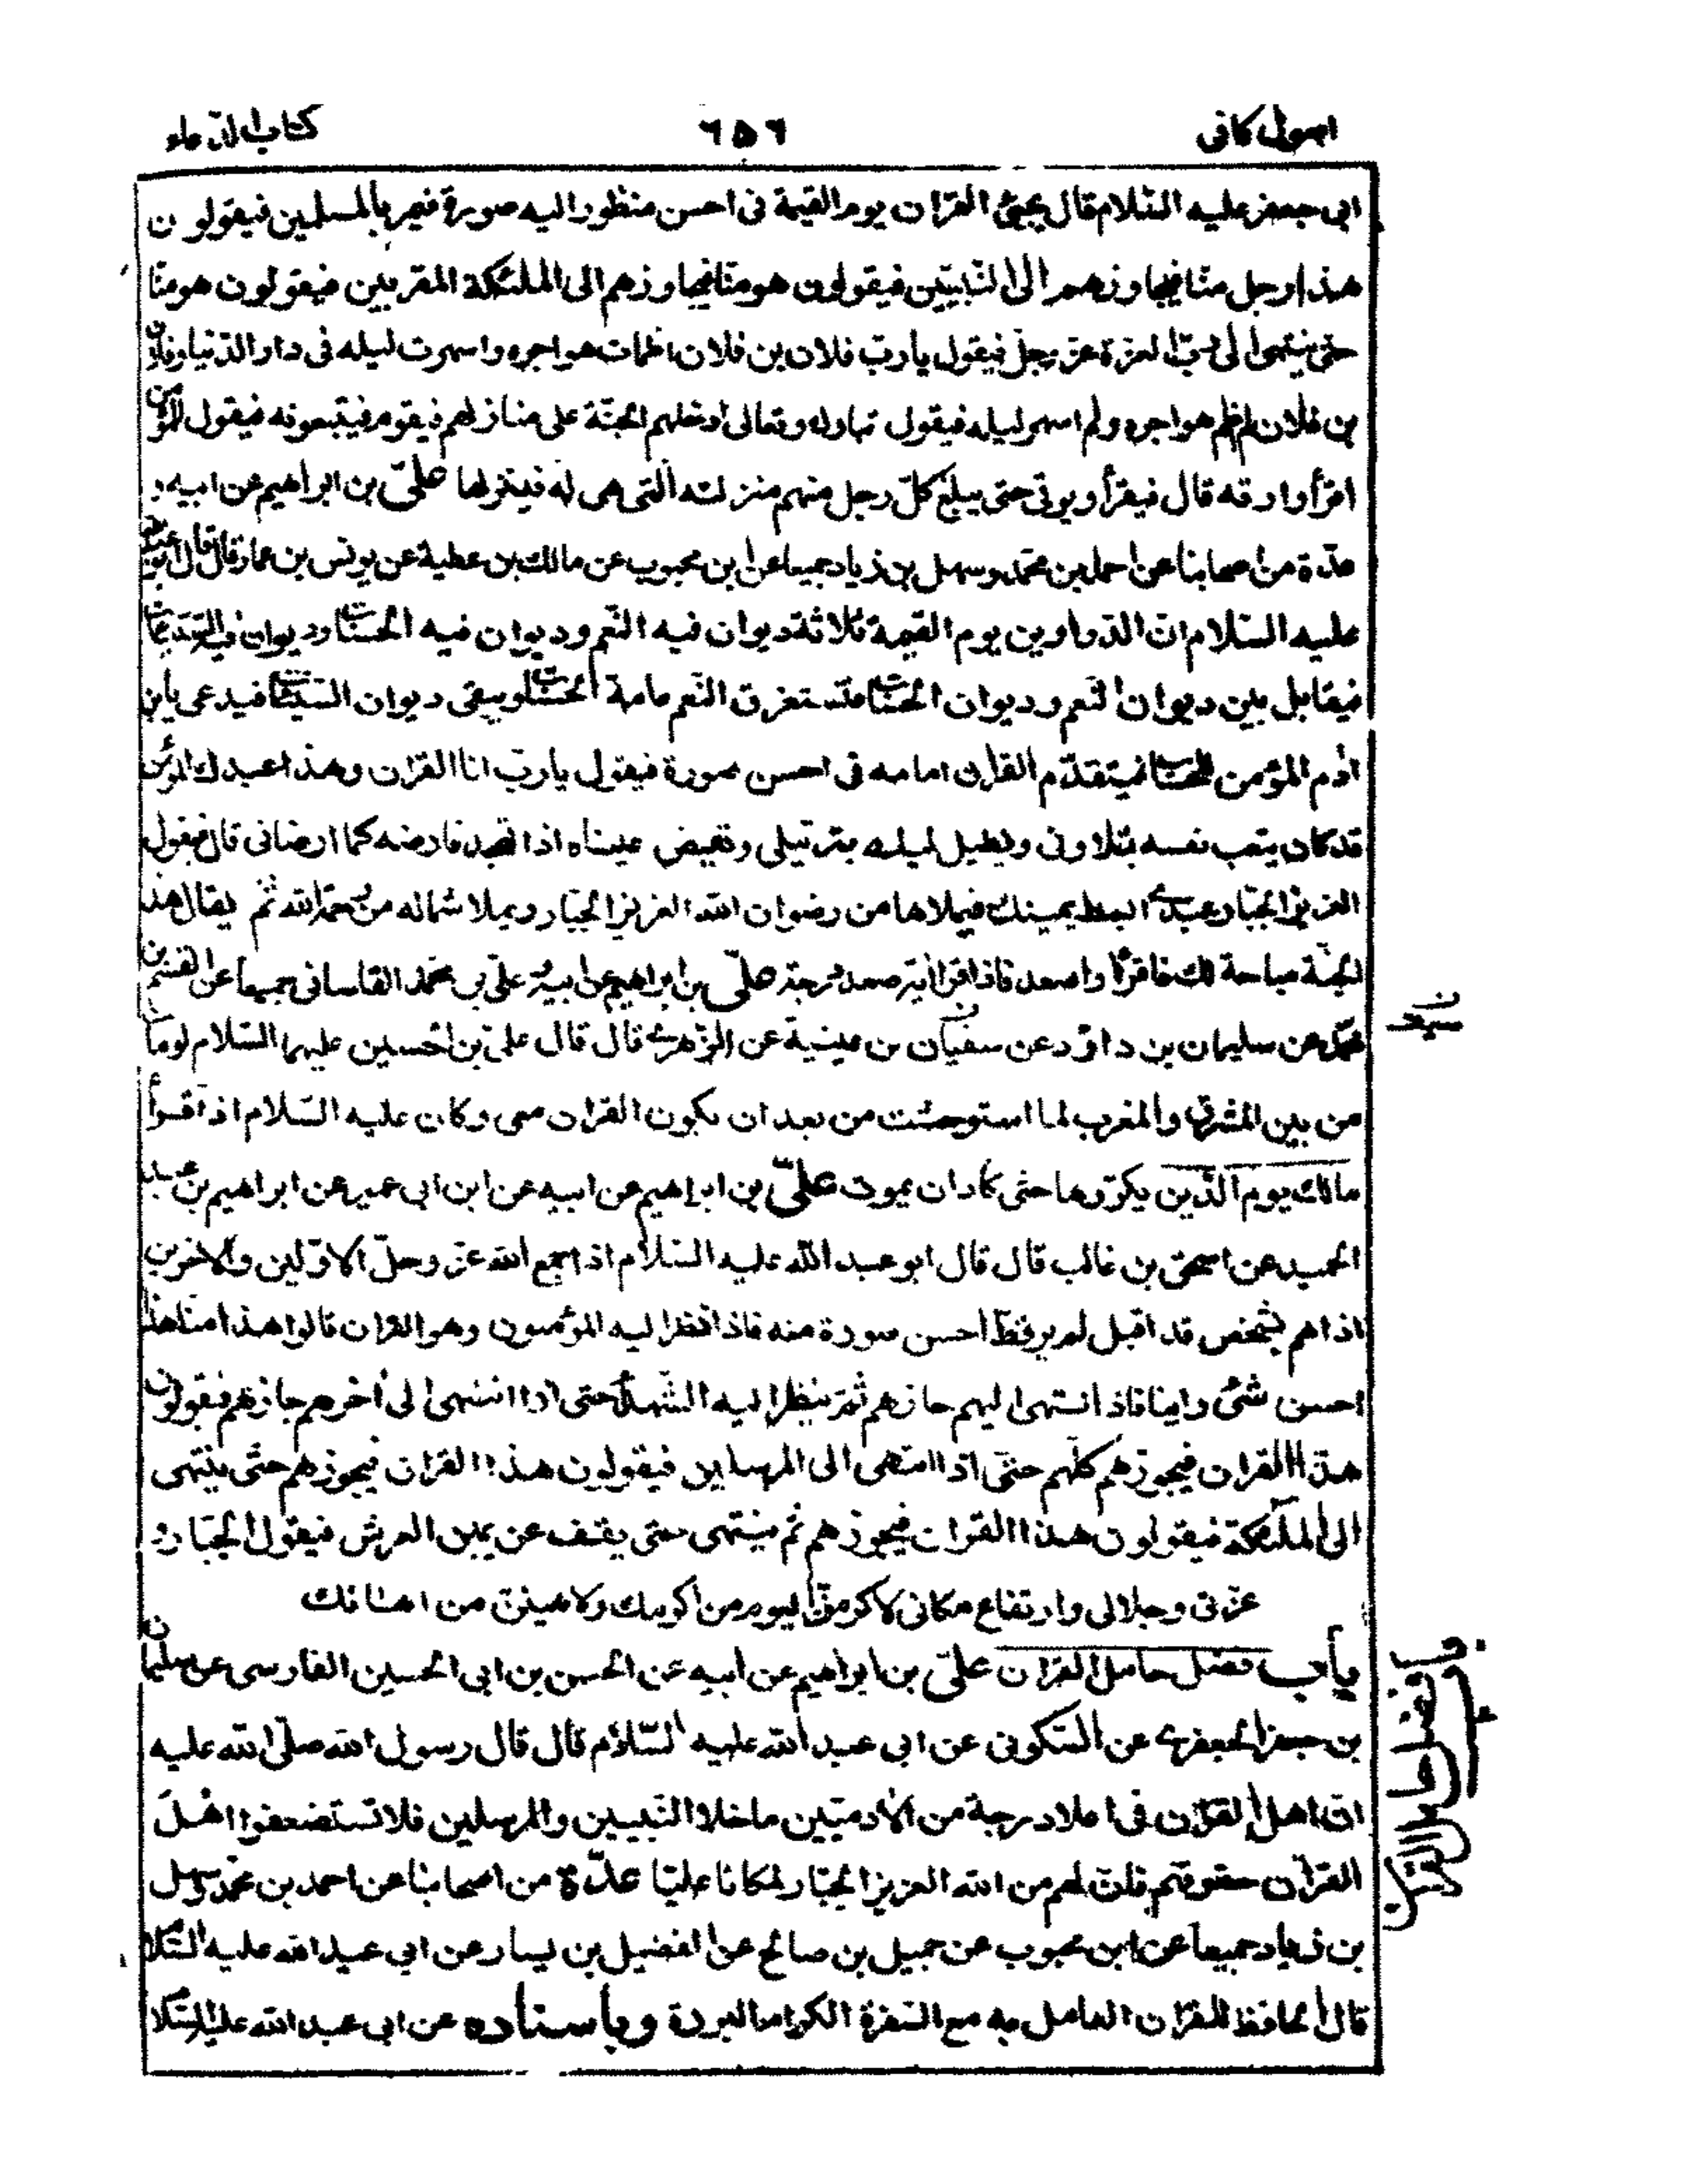 اصول کافی ٦٥٦ کتاب الدعاء
ابی جعفر علیه السّلام قال یجیئ القران یوم القیمة فی احسن منظور الیه صورة فیمر بالمسلمین فیقولون
هذا رجل منّا فیجاوزهم الی النّبیّین فیقولون هو منّا فیجاوزهم الی الملئکة المقربین فیقولون هو منّا
حتی ینتهی الی ربّ العزة عزّ وجلّ فیقول یا ربّ فلان بن فلان اظمات هواجره واسهرت لیله فی دار الدّنیا وفلان
بن فلان لم اظم هواجره ولم اسهر لیله فیقول تبارك وتعالی ادخلهم الجنّة علی منازلهم فیقوم فیتبعونه فیقول للمؤمن
اقرأ وارقه قال فیقرأ ویرقی حتی یبلغ کلّ رجل منهم منزلته التی هی له فینزلها علیّ بن ابراهیم عن ابیه و
عدّة من اصحابنا عن احمد بن محمّد وسهل بن زیاد جمیعا عن ابن محبوب عن مالك بن عطیة عن یونس بن عمار قال قال ابو عبد الله
علیه السّلام انّ الدّواوین یوم القیمة ثلاثة دیوان فیه النّعم ودیوان فیه الحسنات ودیوان فیه السّیّئات
فیقابل بین دیوان النّعم ودیوان الحسنات فتستغرق النّعم عامة الحسنات ویبقی دیوان السّیّئات فیدعی یابن
ادم المؤمن للحساب فیتقدّم القران امامه فی احسن صورة فیقول یا ربّ انا القران وهذا عبدك المؤمن
قد کان یتعب نفسه بتلاوتی ویطیل لیله بترتیلی وتفیض عیناه اذا تهجد فارضه کما ارضانی قال فیقول
العزیز الجبّار عبدی ابسط یمینك فیملاها من رضوان الله العزیز الجبّار ویملا شماله من رحمة الله ثم یقال هذه
الجنّة مباحة لك فاقرأ واصعد فاذا قرأ ایة صعد درجة علیّ بن ابراهیم عن ابیه وعلیّ بن محمّد القاسانی جمیعا عن القسم بن
محمّد عن سلیمان بن داوٗد عن سفیان بن عیینة عن الزّهری قال قال علیّ بن الحسین علیهما السّلام لو مات
من بین المشرق والمغرب لما استوحشت من بعد ان یکون القران معی وکان علیه السّلام اذا قرأ
مالك یوم الدّین یکرّرها حتی کاد ان یموت علیّ بن ابراهیم عن ابیه عن ابن ابی عمیر عن ابراهیم بن عبد
الحمید عن اسحق بن غالب قال قال ابو عبد الله علیه السّلام اذا جمع الله عزّ وجلّ الاوّلین والاخرین
اذا هم بشخص قد اقبل لم یر قطّ احسن صورة منه فاذا نظر الیه المؤمنون وهو القران قالوا هذا منّا هذا
احسن شئ راینا فاذا انتهی الیهم جازهم ثمّ ینظر الیه الشّهداء حتی اذا انتهی الی اخرهم جازهم فیقولون
هذا القران فیجوزهم کلّهم حتّی اذا انتهی الی المرسلین فیقولون هذا القران فیجوزهم حتّی ینتهی
الی الملئکة فیقولون هذا القران فیجوزهم ثم ینتهی حتی یقف عن یمین العرش فیقول الجبّار و
عزّتی وجلالی وارتفاع مکانی لاکرمنّ الیوم من اکرمك ولاهیننّ من اهانك
باب فضل حامل القران علیّ بن ابراهیم عن ابیه عن الحسن بن ابی الحسین الفارسی عن سلیمان
بن جعفر الجعفری عن السّکونی عن ابی عبد الله علیه السّلام قال قال رسول الله صلّی الله علیه
انّ اهل القران فی اعلا درجة من الادمیّین ما خلا النّبیین والمرسلین فلا تستضعفوا اهل
القران حقوقهم فانّ لهم من الله العزیز الجبّار لمکانا علیّا عدّة من اصحابنا عن احمد بن محمّد وسهل
بن زیاد جمیعا عن ابن محبوب عن جمیل بن صالح عن الفضیل بن یسار عن ابی عبد الله علیه السّلام
قال الحافظ للقران العامل به مع السّفرة الکرام البررة وباسناده عن ابی عبد الله علیه السّلام